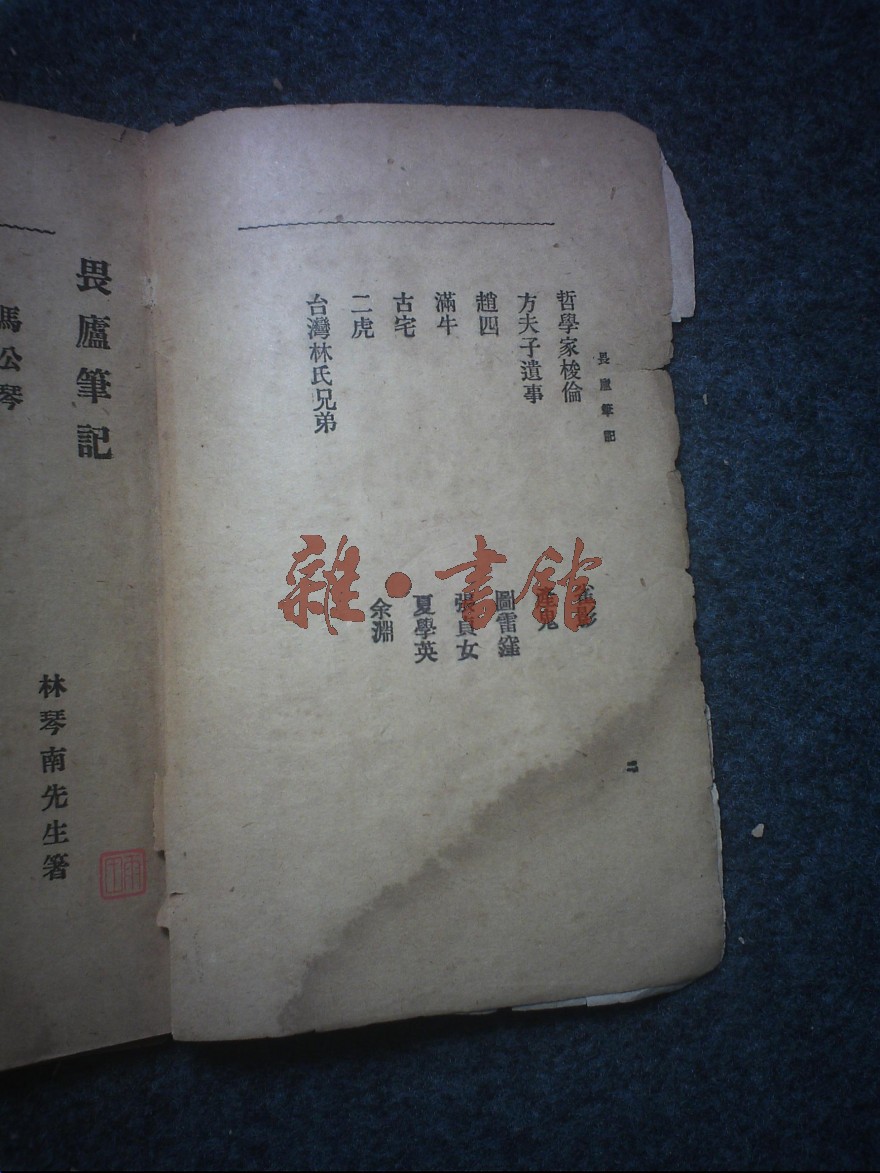 畏廬筆記
哲學家梭倫
方夫子遺事
趙四
滿牛
古宅
二虎
台灣林氏兄弟
圖雷窪
張貞女
夏學英
余淵
二
雜·書館
畏廬筆記
林琴南先生箸
馮公琴